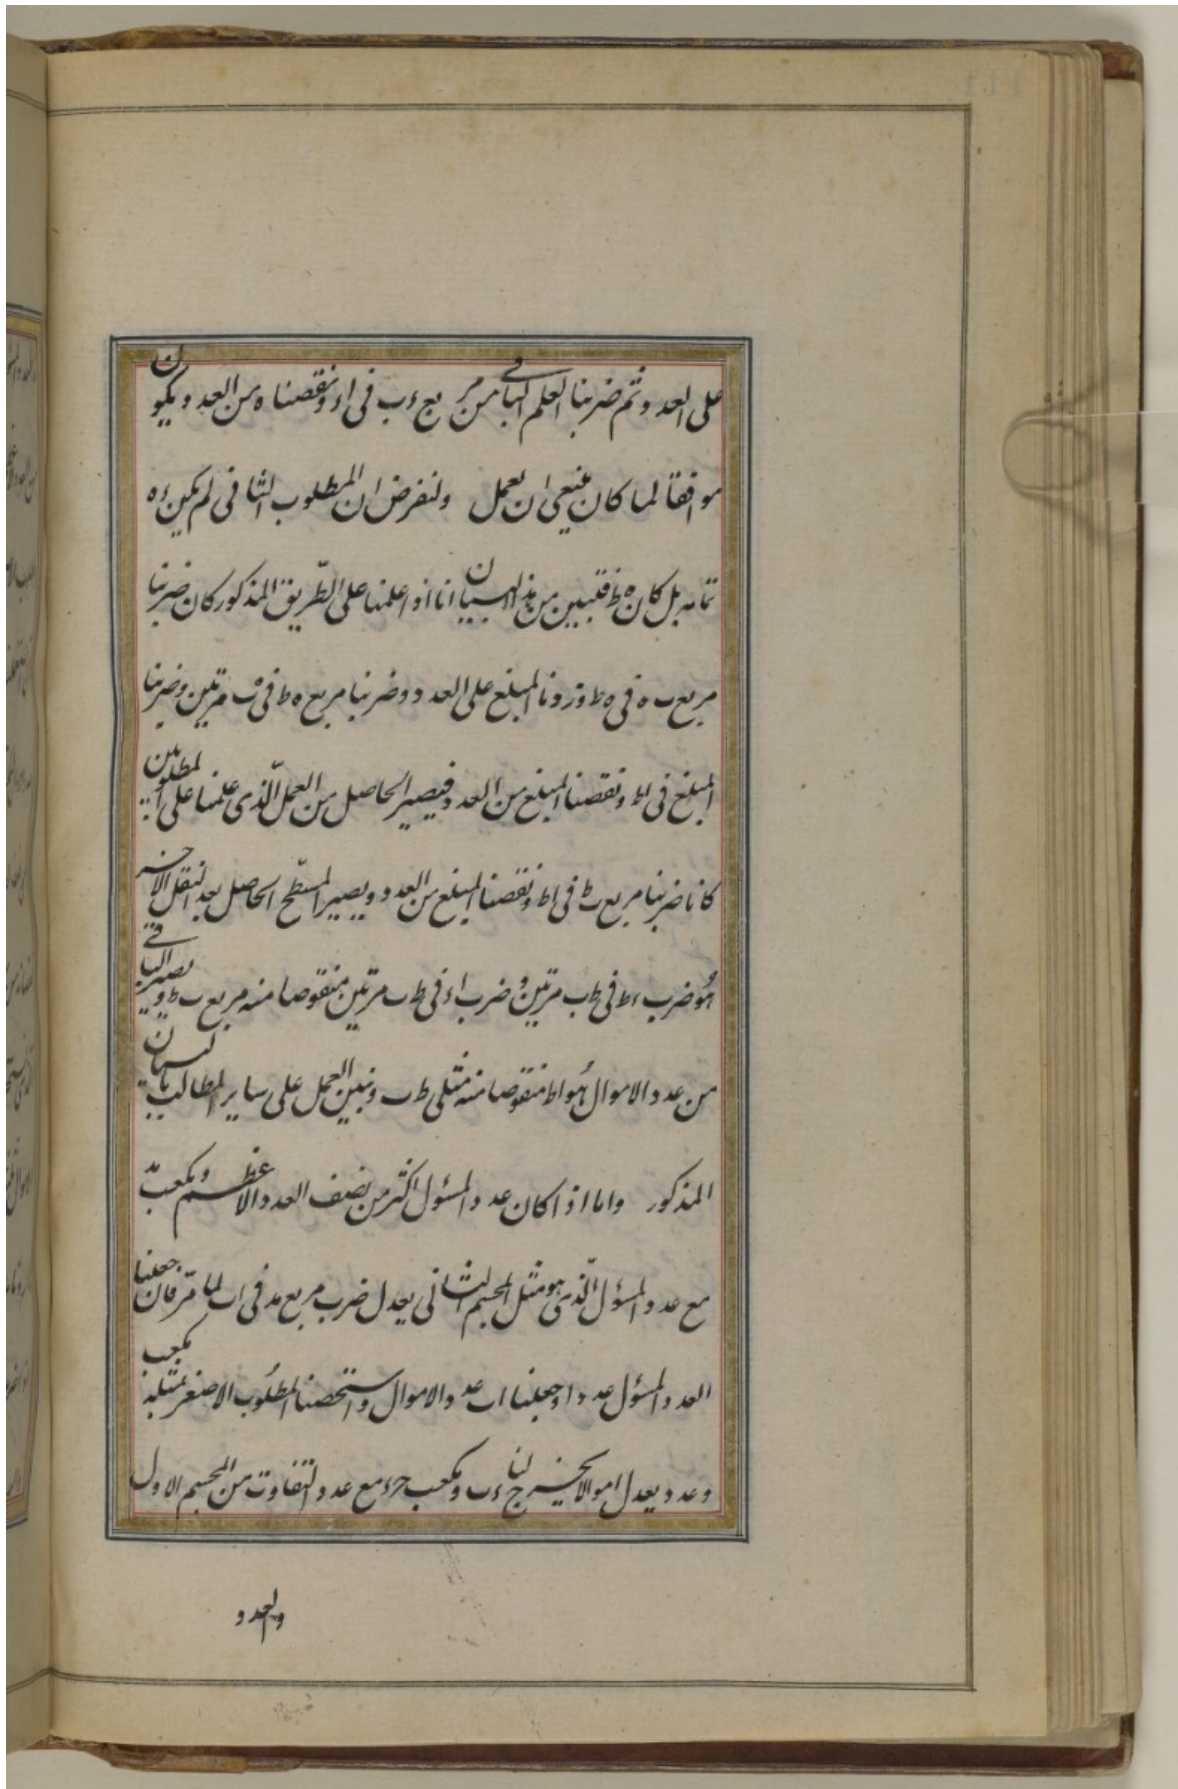 على العدد ثم ضربنا العلم الباقى من مربع ءب فى اء ونقصناه من العدد ويكون
موافقا لما كان ينبغى ان يعمل ولنفرض ان المطلوب الثانى لم يكن ءه
تمامه بل كان ه ط فتبين من هذا البيان انا اذا عملنا على الطريق المذكور كان ضربنا
مربع ب ه فى ه ط وزدنا المبلغ على العدد وضربنا مربع ه ط فى ه ب مرتين وضربنا
المبلغ فى اط ونقصنا المبلغ من العدد فيصير الحاصل من العمل الذى عملنا على المطلوبين
كانا ضربنا مربع ب ط فى اط ونقصنا المبلغ من العدد ويصير المسطح الحاصل بعد النقل الاخير
هو ضرب ءط فى ط ب مرتين وضرب اء فى ط ب مرتين منقوصا منه مربع ب ط ويصير الباقى
من عدد الاموال هو اط منقوصا منه مثلى ط ب ونبين العمل على ساير المطالب بالبيان
المذكور واما اذا كان عدد المسؤل اكثر من نصف العدد الاعظم ومكعب
مع عدد المسؤل الذى هو مثل المجسم الثانى يعدل ضرب مربع فى اب لما مر فان جعلنا
العدد المسؤل عددا وجعلنا اب عدد الاموال واستحصنا المطلوب الاصغر بمثله مكعب
وعدد يعدل اموالا يخرج لنا ءب ومكعب حء مع عدد التفاوت من المجسم الاول
والعدد